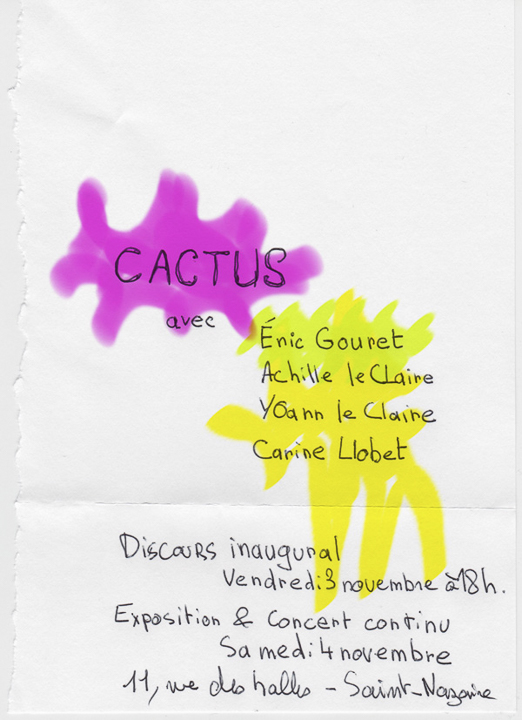 CACTUS
avec
Éric Gouret
Achille le Claire
YOann le Claire
Carine Llobet
Discours inaugural
Vendredi 3 novembre à 18h.
Exposition & Concert continu
Samedi 4 novembre
11, rue des halles - Saint-Nazaire